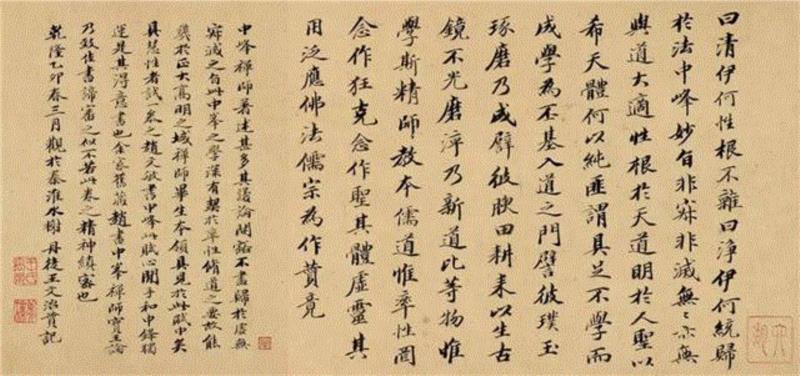 曰清伊何性根不雜曰淨伊何統歸
於法中峰妙旨非寂非滅無〻亦無
與道大適性根於天道明於人聖以
希天體何以純匪謂具足不學而
成學為丕基入道之門譬彼璞玉
琢磨乃成璧彼腴田耕耒以生古
鏡不光磨淬乃新道比等物惟
學斯精師教本儒道惟率性罔
念作狂克念作聖其體虛靈其
用泛應佛法儒宗為作贊竟
中峰禪師著述甚多其議論閎豁不盡歸於虛無
寂滅之旨此中峯之學深有契於率性脩道之要故能
躋於正大高明之域禪師畢生本領具見於此賦中矣
具慧性者試一參之趙文敏書中峰此賦心閒手和中鋒獨
運是其得意書也余家舊藏趙書中峯禪師賓主論
乃致佳書諦審之似不若此卷之精神縝密也
乾隆乙卯春三月觀於秦淮水榭丹徒王文治贊記